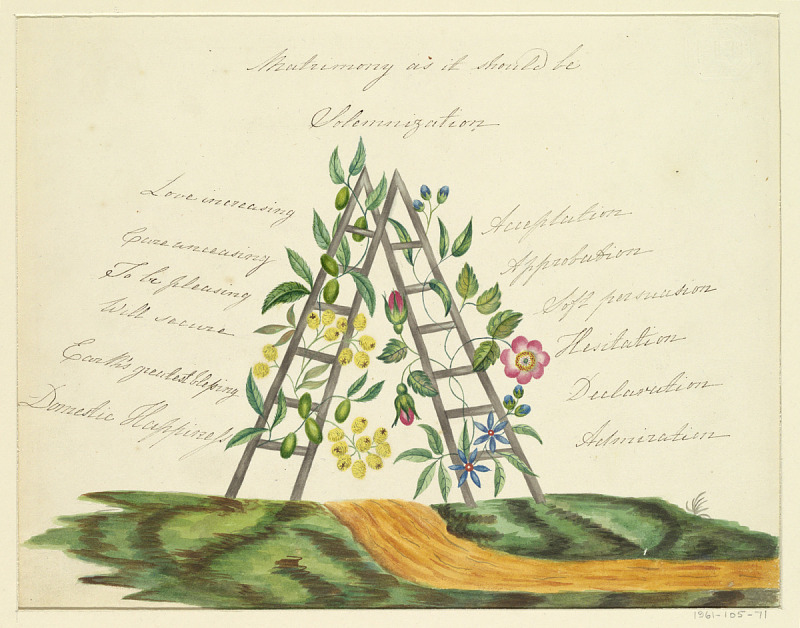 Matrimony as it should be
Solemnization
Love increasing
Care unceasing
To be pleasing
Will secure
Earth's greatest blessing
Domestic Happiness
Acceptation
Approbation
Soft persuasion
Hesitation
Declaration
Admiration
1961-105-71